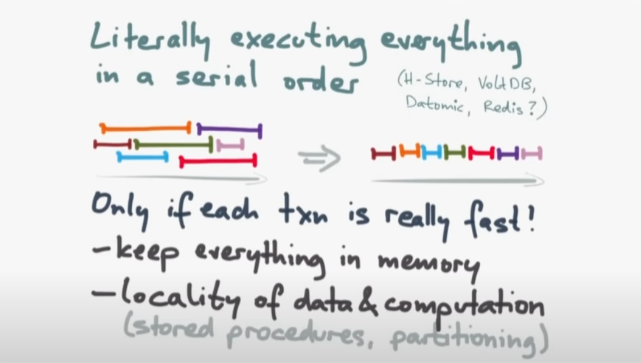 Literally executing everything
in a serial order
(H-Store, VoltDB,
Datomic, Redis?)
Only if each txn is really fast!
-keep everything in memory
-locality of data & computation
(stored procedures, partitioning)